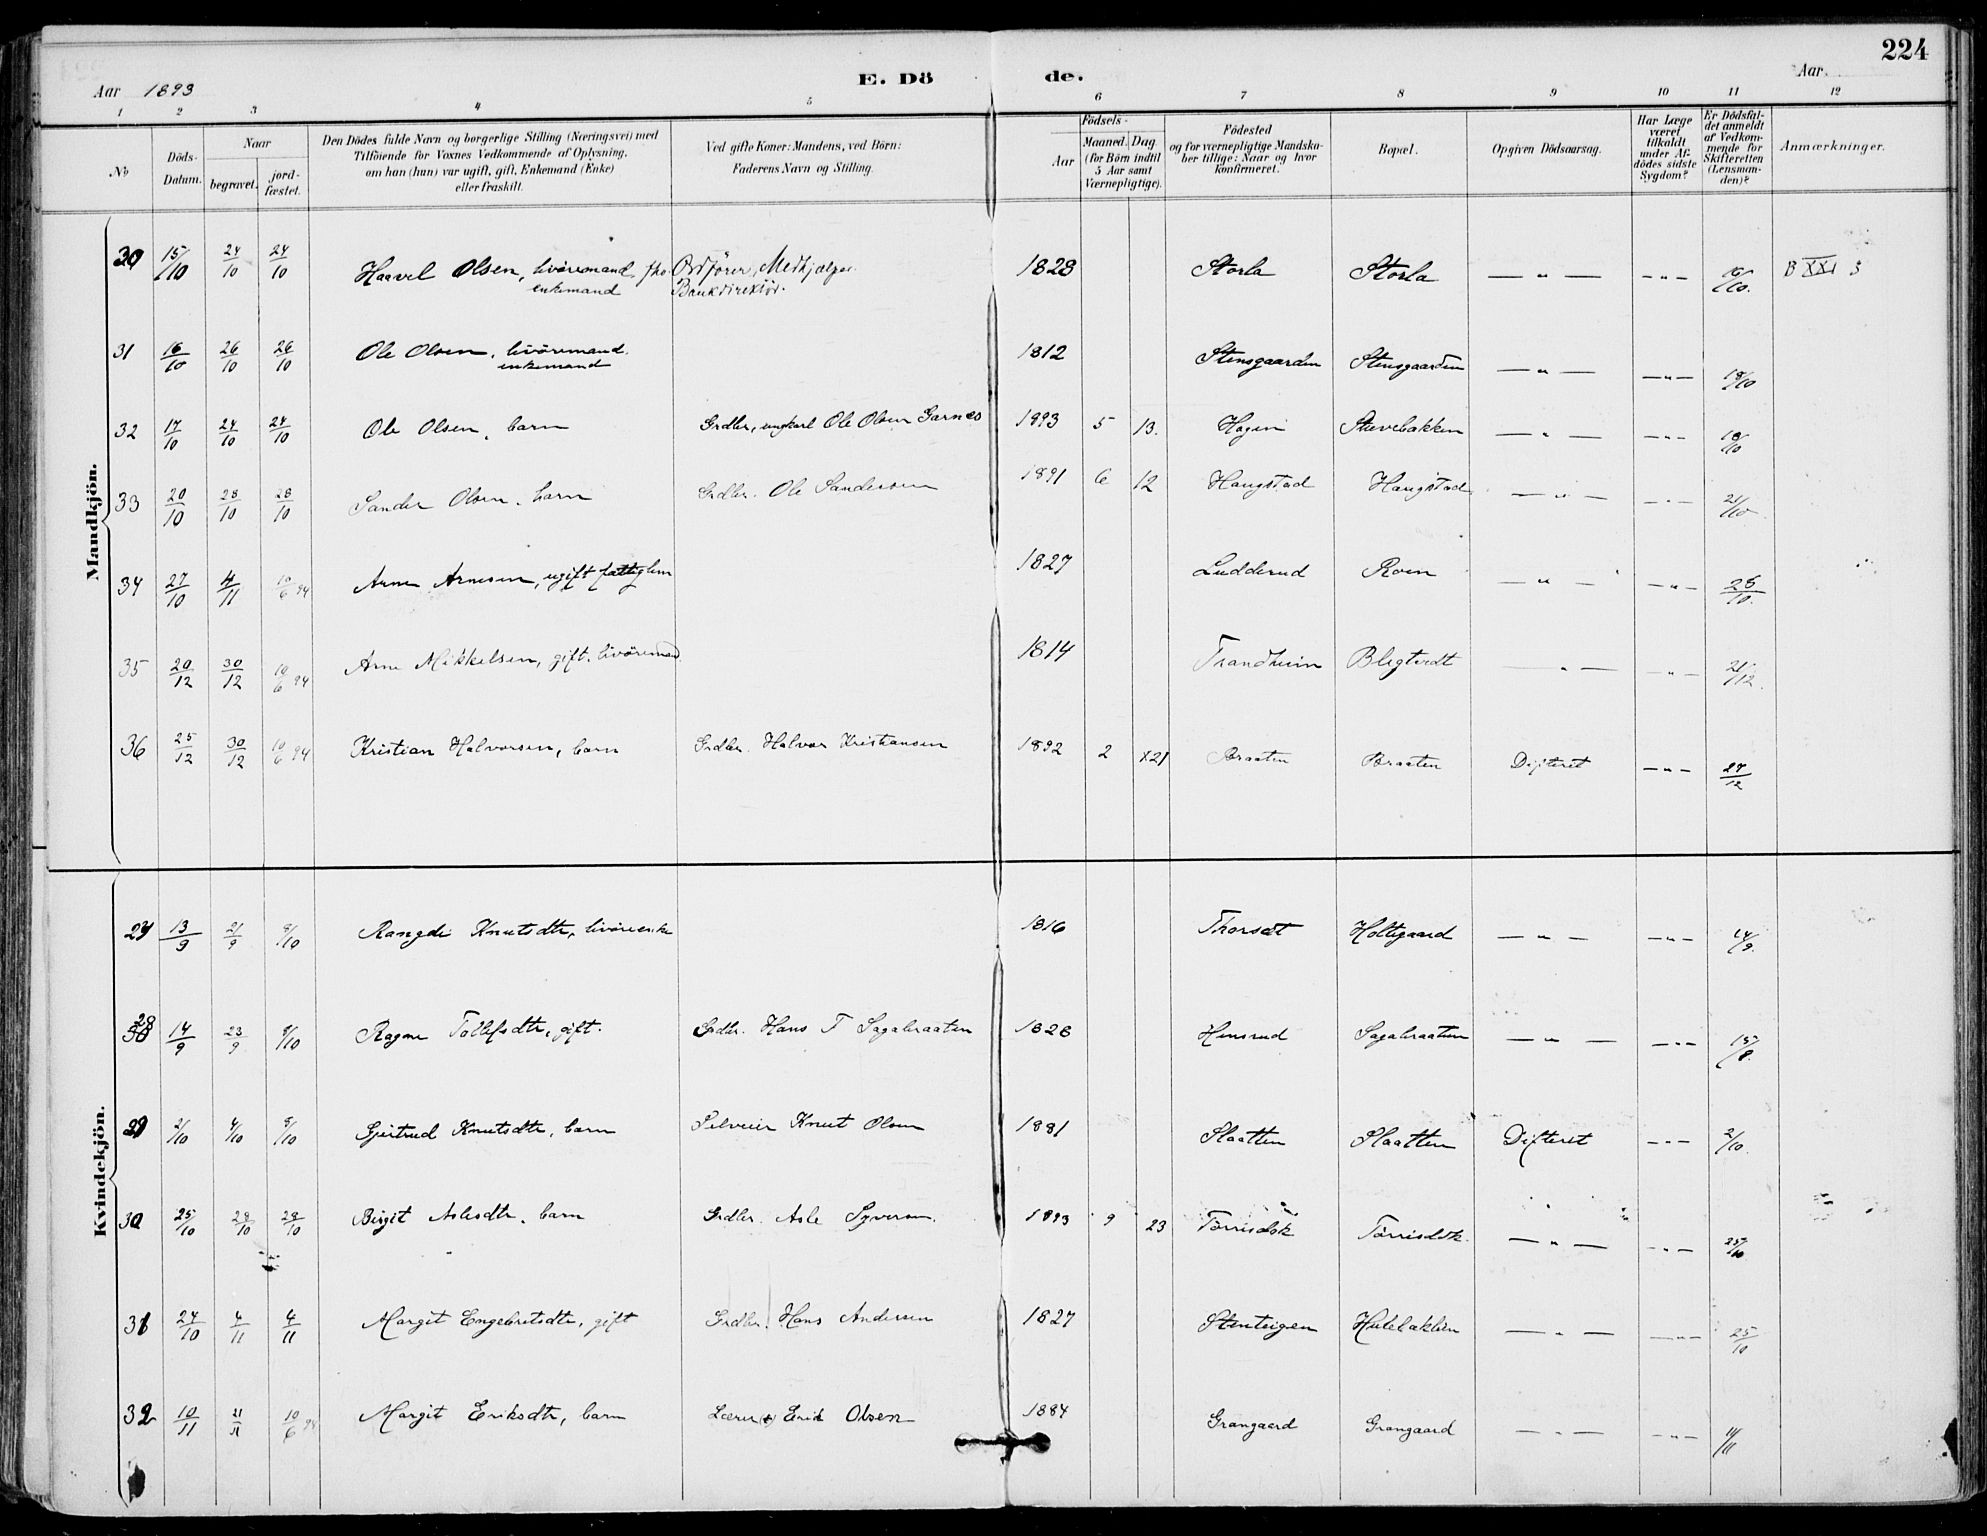 224
Aar 1893
E. Dö de.
Aar
1 2 3 4 5 6 7 8 9 10 11 12
No
Döds-Datum.
Naar
begravet.
jord-fæstet.
Den Dödes fulde Navn og borgerlige Stilling (Næringsvei) med
Tilföiende for Voxnes Vedkommende af Oplysning,
om han (hun) var ugift, gift, Enkemand (Enke)
eller fraskilt.
Ved gifte Koner: Mandens, ved Börn:
Faderens Navn og Stilling.
Födsels-
Aar
Maaned. Dag.
(for Börn indtil
5 Aar samt
Værnepligtige).
Födested
og for værnepligtige Mandska-
ber tillige: Naar og hvor
konfirmeret.
Bopæl.
Opgiven Dödsaarsag.
Har Læge
været
tilkaldt
under Af-
dödes sidste
Sygdom?
Er Dödsfal-
det anmeldt
af Vedkom-
mende for
Skifteretten
(Lensman-
den)?
Anmærkninger.
Mandkjön.
30 15/10 24/10 24/10 Haavel Olsen, livöremand, fho. Ordförer, Medhjælper 1828 Storla Storla — " — — " — /10. B XXI 3
enkemand Bankdirektör.
31 16/10 26/10 26/10 Ole Olsen, livöremand. 1812 Stensgaarden Stensgaarden — " — — " — 18/10
enkemand
32 17/10 24/10 24/10 Ole Olsen, barn Grdbr, ungkarl Ole Olsen Garnes 1893 5 13. Hagen Stuvebakken — " — — " — 18/10
33 20/10 28/10 28/10 Sander Olsen, barn Grdbr. Ole Sandersen 1891 6 12 Haugstad Haugstad — " — — " — 21/10
34 27/10 4/11 10/6 94 Arne Arnesen, ugift fattiglem 1827 Ludderud Roen — " — — " — 28/10.
35 20/12 30/12 10/6 94 Arne Mikkelsen, gift, livöremand 1814 Trandheim Blegtvedt — " — — " — 21/12.
36 25/12 30/12 10/6 94 Kristian Halvorsen, barn Grdbr. Halvor Kristiansen 1892 2 21 Braaten Braaten Difteret — " — 27/12
Kvindekjön.
27 13/9 21/9 8/10 Rangdi Knutsdtr, livöreenke 1816 Thorset Holtegaard — " — — " — 14/9.
28 14/9 23/9 8/10 Ragne Tollefsdtr, gift. Grdbr. Hans T Sagabraaten 1828 Hensrud Sagabraaten — " — — " — 15/9.
29 2/10 4/10 8/10 Gjertrud Knutsdtr, barn Selveier Knut Olsen 1881 Slaatten Slaatten Difteret — " — 2/10.
30 25/10 28/10 28/10 Birgit Aslesdtr, barn Grdbr. Asle Syversen. 1893 9 23 Torrisdsk Torrisdsk. — " — — " — 25/10
31 24/10 4/11 4/11 Margit Engebretsdtr, gift Grdbr. Hans Andersen 1827 Stenteigen Hulebakken — " — — " — 25/10
32 10/11 21/11 10/6 94 Margit Eriksdtr, barn Lærer (+) Erik Olsen 1884 Grangaard Grangaard — " — — " — 11/11